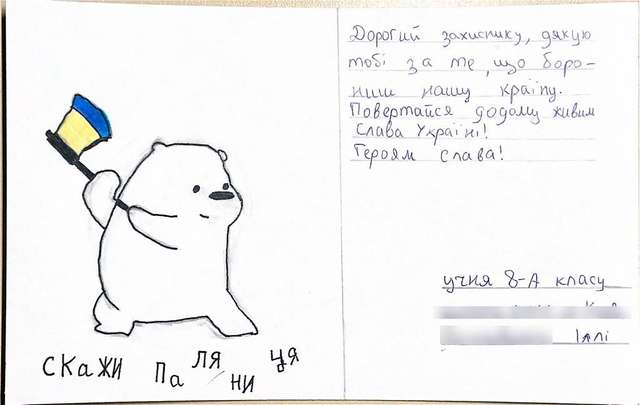 скажи паляниця
Дорогий захиснику, дякую
тобі за те, що боро-
ниш нашу країну.
Повертайся додому живим
Слава Україні!
Героям слава!
учня 8-А класу
Іллі